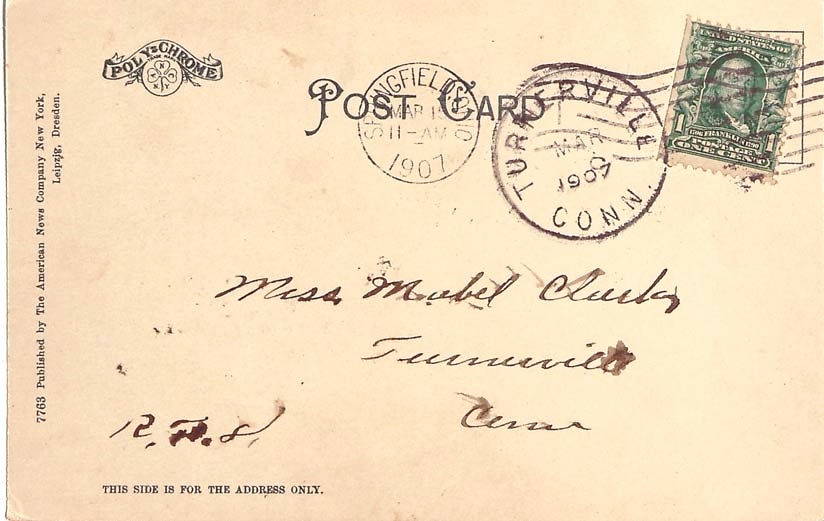 POLY-CHROME
POST CARD
SPRINGFIELD, OHIO
MAR 15
11-AM
1907
TURNERVILLE
MAR
1907
CONN.
UNITED STATES OF
AMERICA
1706 FRANKLIN 1790
POSTAGE
1 ONE CENT 1
7763 Published by The American News Company New York,
Leipzig, Dresden.
Miss Mabel Clark
Turnerville
Conn
THIS SIDE IS FOR THE ADDRESS ONLY.